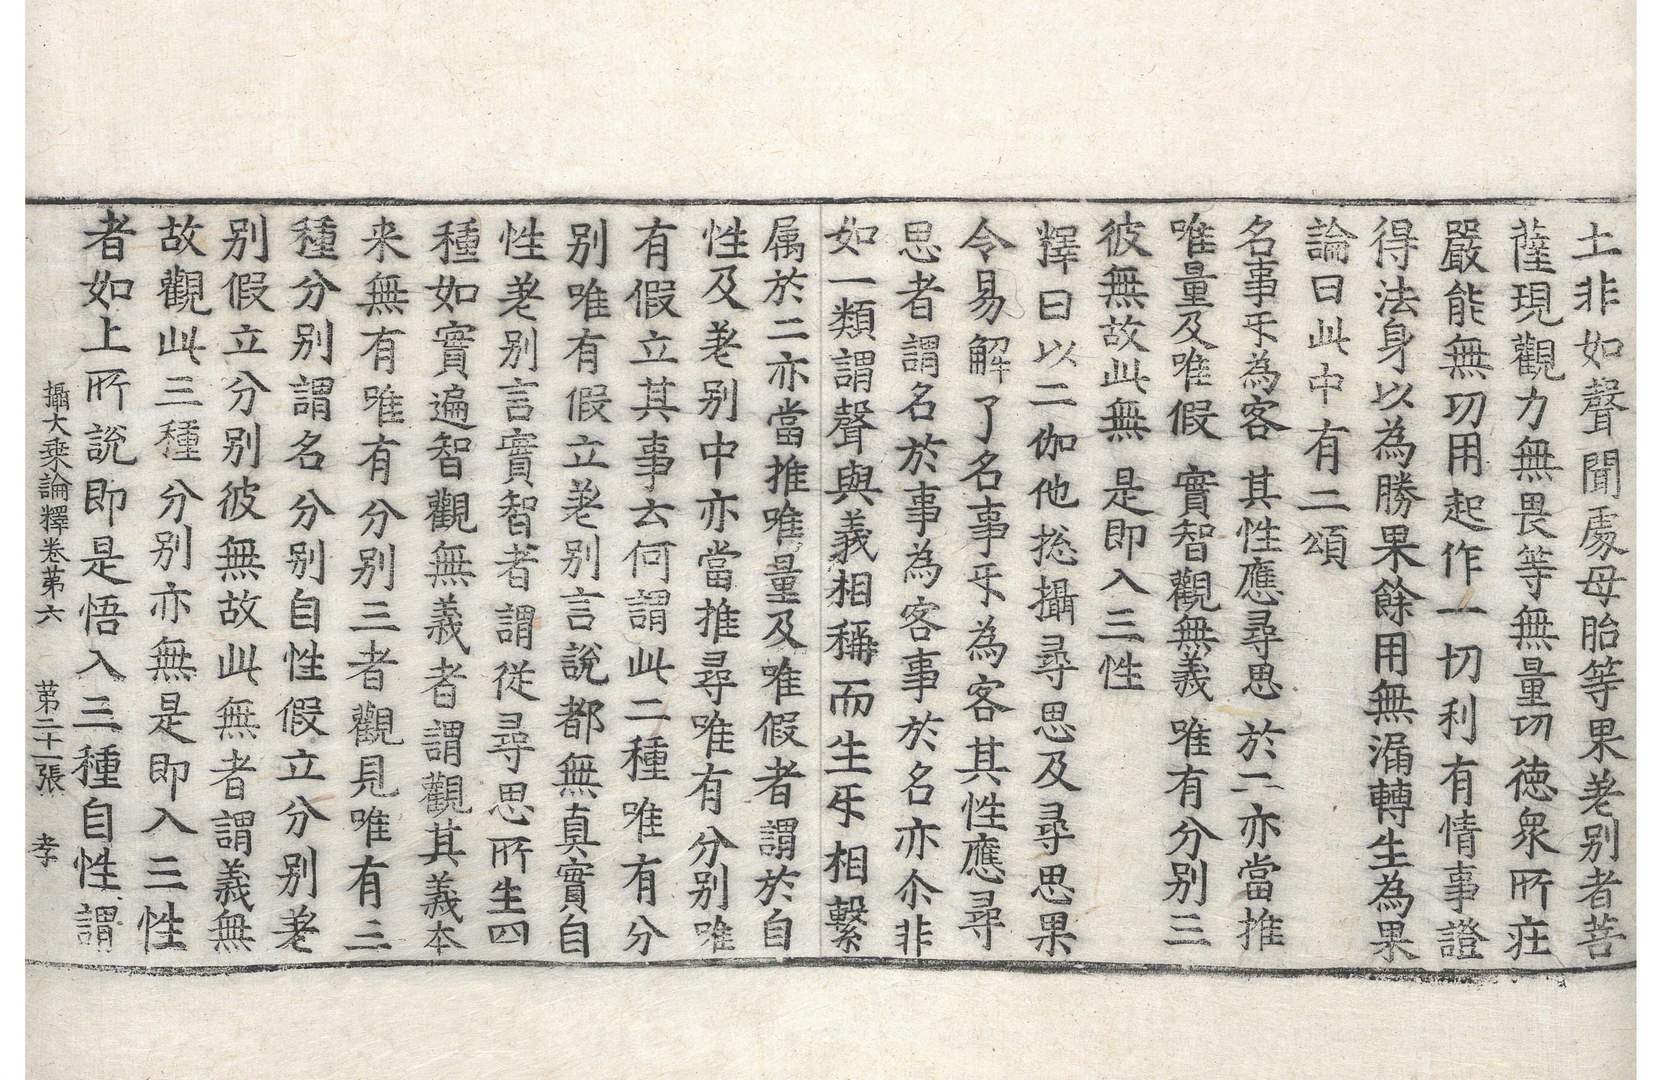 土非如聲聞處母胎等果差别者菩
薩現觀力無畏等無量功德衆所莊
嚴能無功用起作一切利有情事證
得法身以為勝果餘用無漏轉生為果
論曰此中有二頌
名事互為客 其性應尋思 於二亦當推
唯量及唯假 實智觀無義 唯有分别三
彼無故此無 是即入三性
釋曰以二伽他揔攝尋思及尋思果
令易解了名事互為客其性應尋
思者謂名於事為客事於名亦尒非
如一類謂聲與義相稱而生互相繫
属於二亦當推唯量及唯假者謂於自
性及差别中亦當推尋唯有分别唯
有假立其事云何謂此二種唯有分
别唯有假立差别言說都無真實自
性差别言實智者謂從尋思所生四
種如實遍智觀無義者謂觀其義本
来無有唯有分别三者觀見唯有三
種分别謂名分别自性假立分别差
别假立分别彼無故此無者謂義無
故觀此三種分别亦無是即入三性
者如上所說即是悟入三種自性謂
攝大乘論釋卷第六 第二十一張 孝